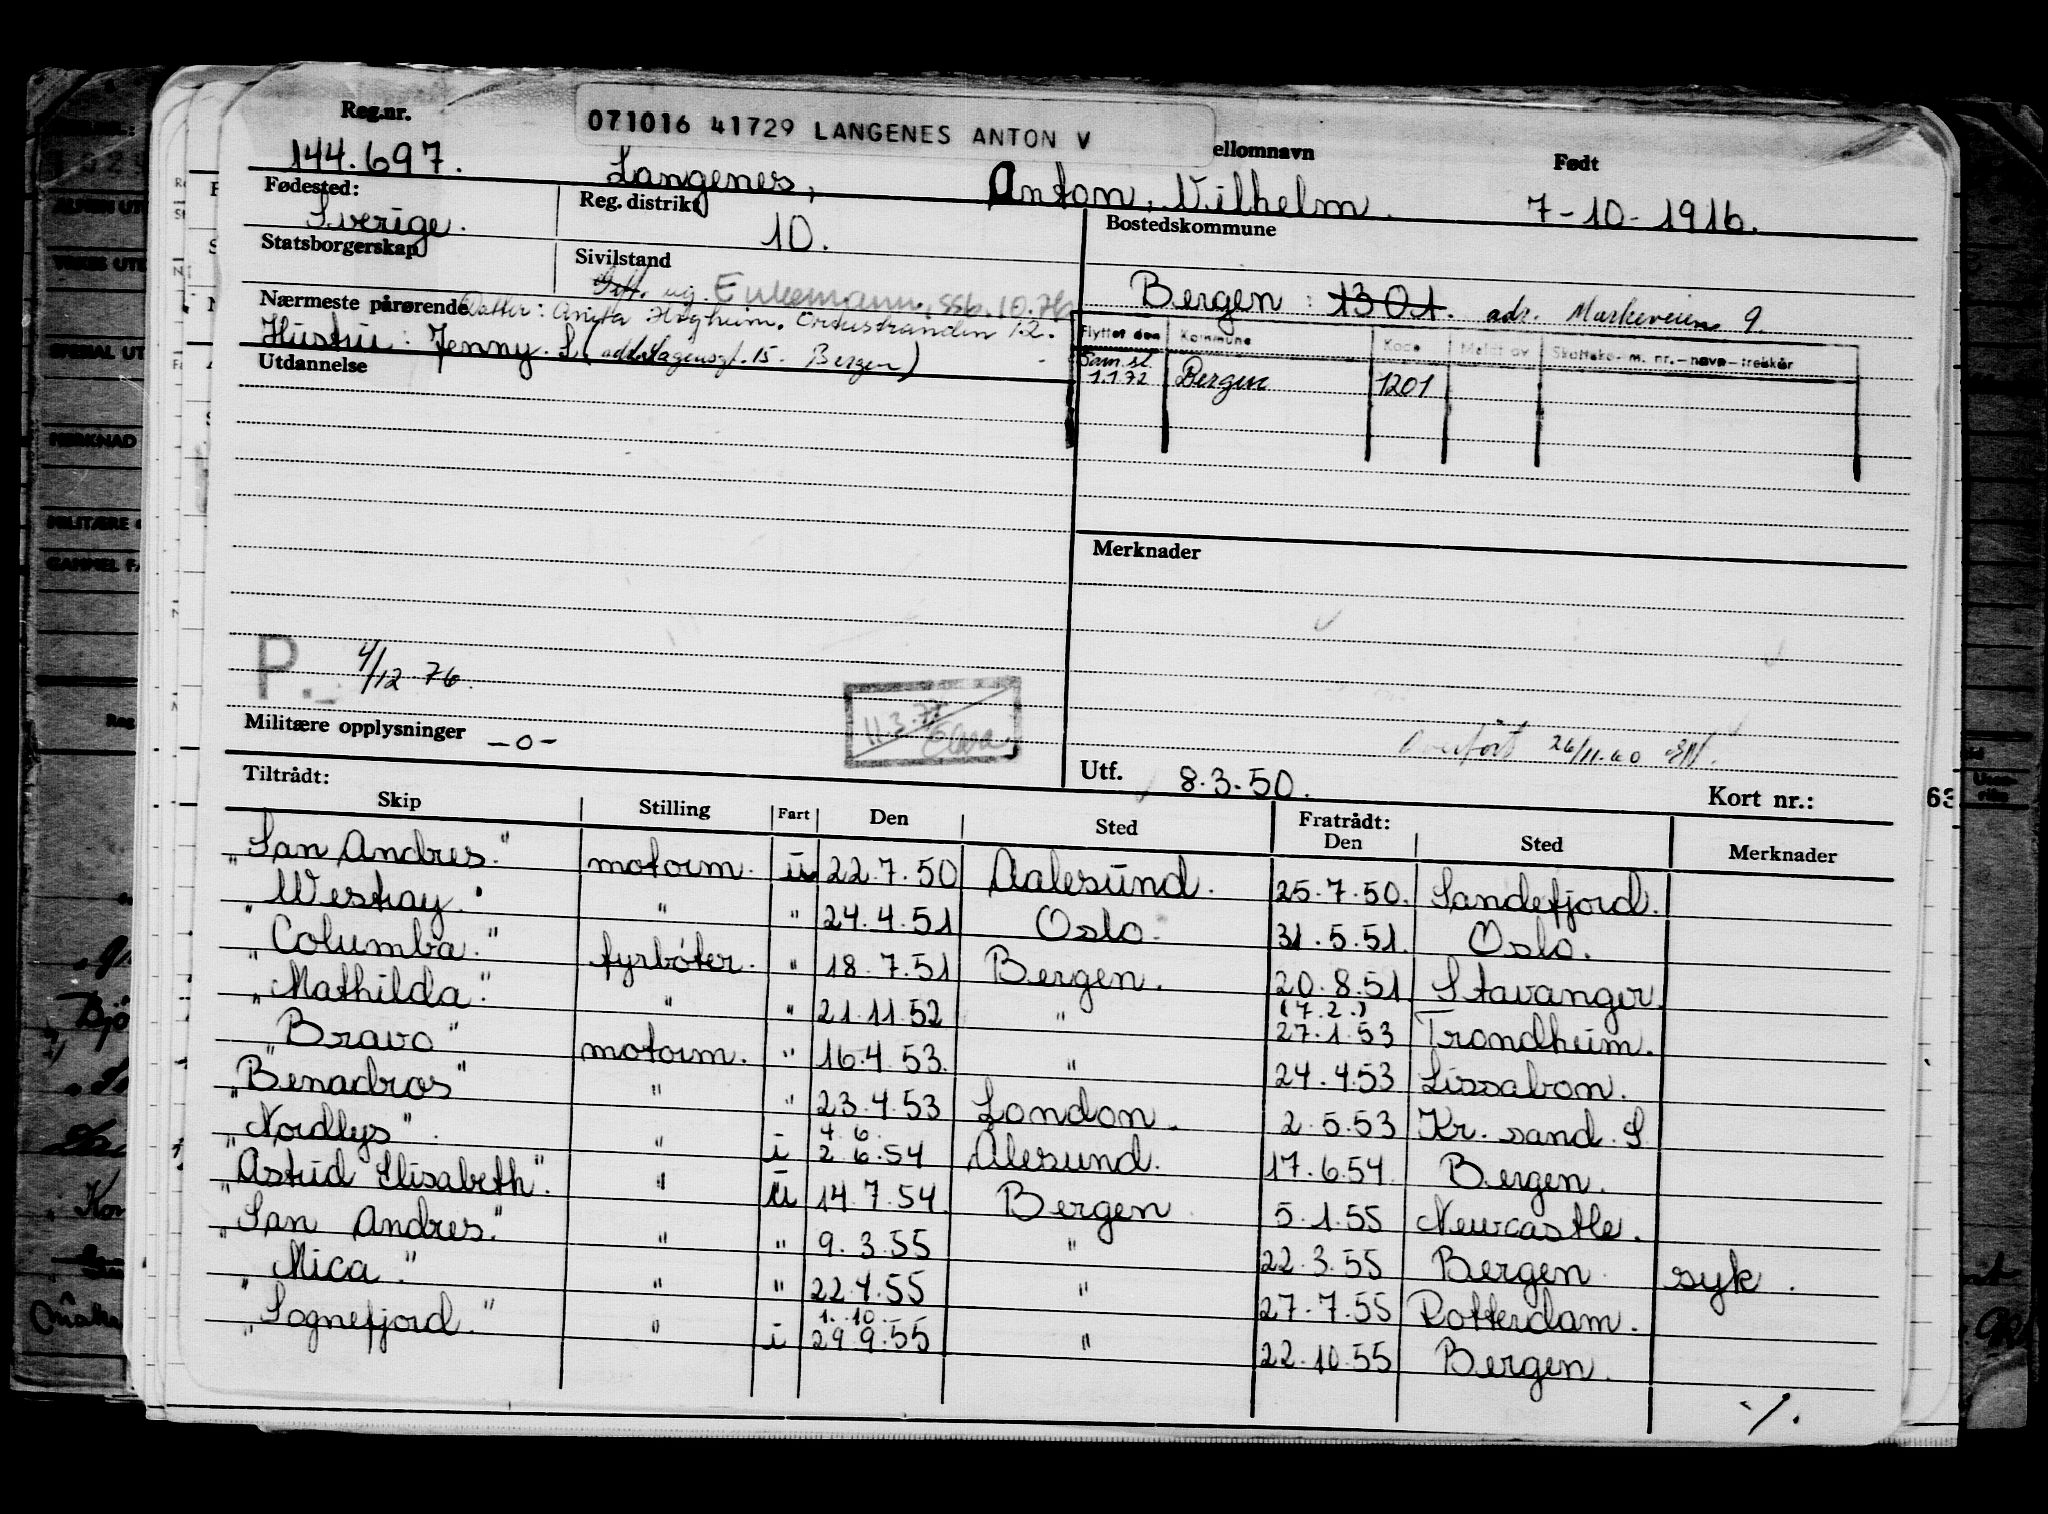 071016 41729 LANGENES ANTON V
Reg.nr. ellomnavn Født
144.697. Langenes, Anton, Vilhelm. 7-10-1916.
Fødested: Reg. distrikt Bostedskommune
Sverige. 10.
Statsborgerskap Sivilstand
ug. Enkemann, ssb. 10.76 Bergen: 1301. adr. Markeveien 9
Nærmeste pårørende Datter: Anita
Hustru: Jenny. L. 15. Bergen)
Flyttet den Kommune Kode Meldt av Skattekom. m. nr.-navn-trekkår
Sam.sl. 1.1.72 Bergen 1201
Utdannelse
Merknader
P. 4/12-76.
11.3.77
Militære opplysninger -o-
Overført 26/11.60
Utf. 8.3.50. Kort nr.:
63
Tiltrådt: Fratrådt:
Skip Stilling Fart Den Sted Den Sted Merknader
"San Andres." motorm. u 22.7.50 Aalesund. 25.7.50. Sandefjord.
"Westray." " " 24.4.51 Oslo. 31.5.51. Oslo.
"Columba." fyrbøter. " 18.7.51 Bergen. 20.8.51 Stavanger.
"Mathilda." " " 21.11.52 " (7.2.) 27.1.53 Trondheim.
"Bravo" motorm. " 16.4.53. " 24.4.53 Lissabon.
"Benadros" " " 23.4.53 London. 2.5.53 Kr. sand. S
"Nordlys". " i 4.6. 2.6.54 Ålesund. 17.6.54. Bergen.
"Astrid Elisabeth". " u 14.7.54. Bergen 5.1.55 Newcastle.
"San Andres." " " 9.3.55 " 22.3.55 Bergen syk.
"Mica." " " 22.4.55 " 27.7.55 Rotterdam.
"Sognefjord." " i 1.10. 29.9.55 " 22.10.55 Bergen.
·/.